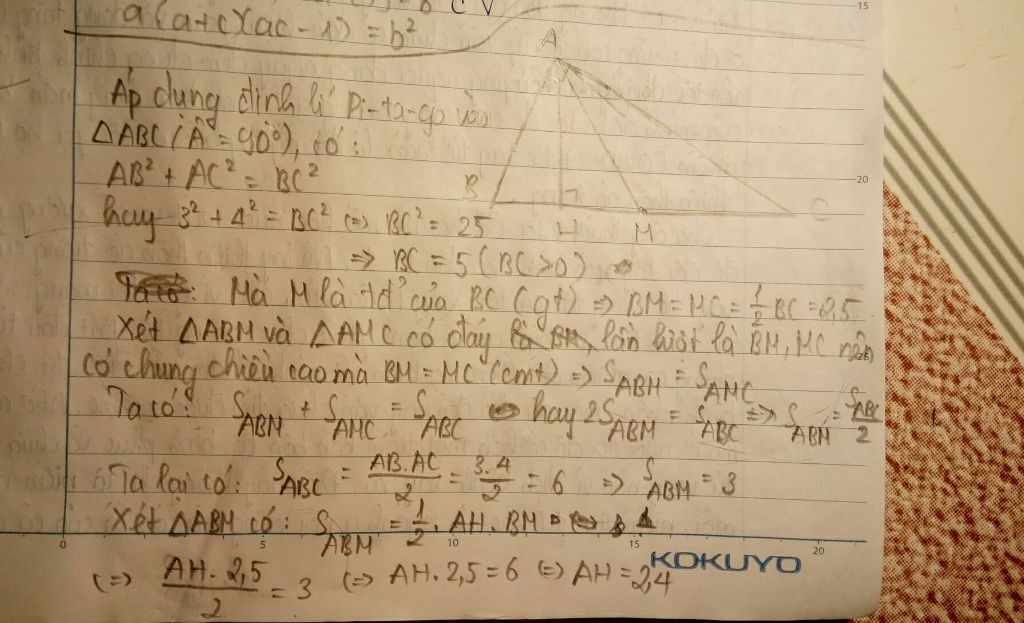 a(a+c)(ac-1) = b²
A
Áp dụng định lí Pi-ta-go vào
ΔABC (Â = 90°), có:
AB² + AC² = BC²
B
C
H
M
hay 3² + 4² = BC² (=) BC² = 25
=> BC = 5 (BC > 0)
Mà M là tđ' của BC (gt) => BM = MC = 1/2 BC = 2,5
Xét ΔABM và ΔAMC có đáy lần lượt là BM, MC nên
có chung chiều cao mà BM = MC (cmt) => S_ABM = S_AMC
Ta có: S_ABM + S_AMC = S_ABC hay 2S_ABM = S_ABC => S_ABM = S_ABC/2
Ta lại có: S_ABC = AB.AC/2 = 3.4/2 = 6 => S_ABM = 3
Xét ΔABM có: S_ABM = 1/2 . AH . BM
(=) AH . 2,5/2 = 3 (=) AH . 2,5 = 6 (=) AH = 2,4
0 5 10 15 20
KOKUYO
15
20